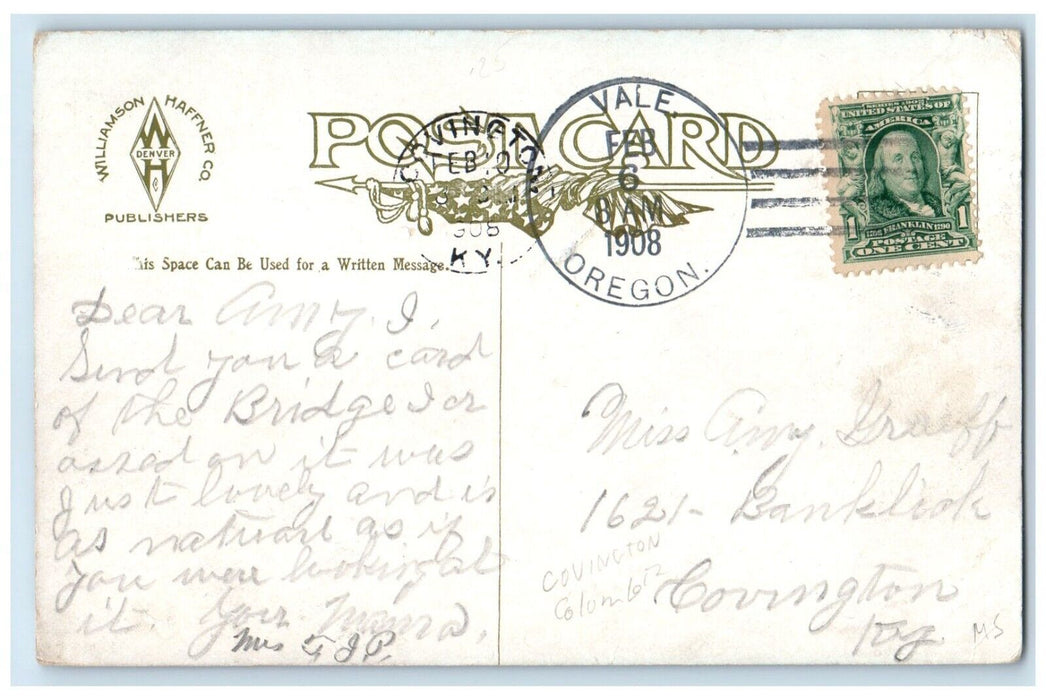 WILLIAMSON HAFFNER CO.
W
DENVER
H
Co
PUBLISHERS
POST CARD
COVINGTON
FEB 10
1908
KY.
VALE
FEB
6
8 AM
1908
OREGON.
SERIES 1902
UNITED STATES OF
AMERICA
1 1706 FRANKLIN 1790 1
POSTAGE
ONE CENT
This Space Can Be Used for a Written Message.
Dear Amy. I.
Send you a card
of the Bridge I cr
ossed on it was
Just lovely and is
as natural as if
you were looking at
it. Your Mama.
Mrs G J P.
Miss Amy. Graeff
1621- Banklick
Covington
Ky
COVINGTON
MS
.25